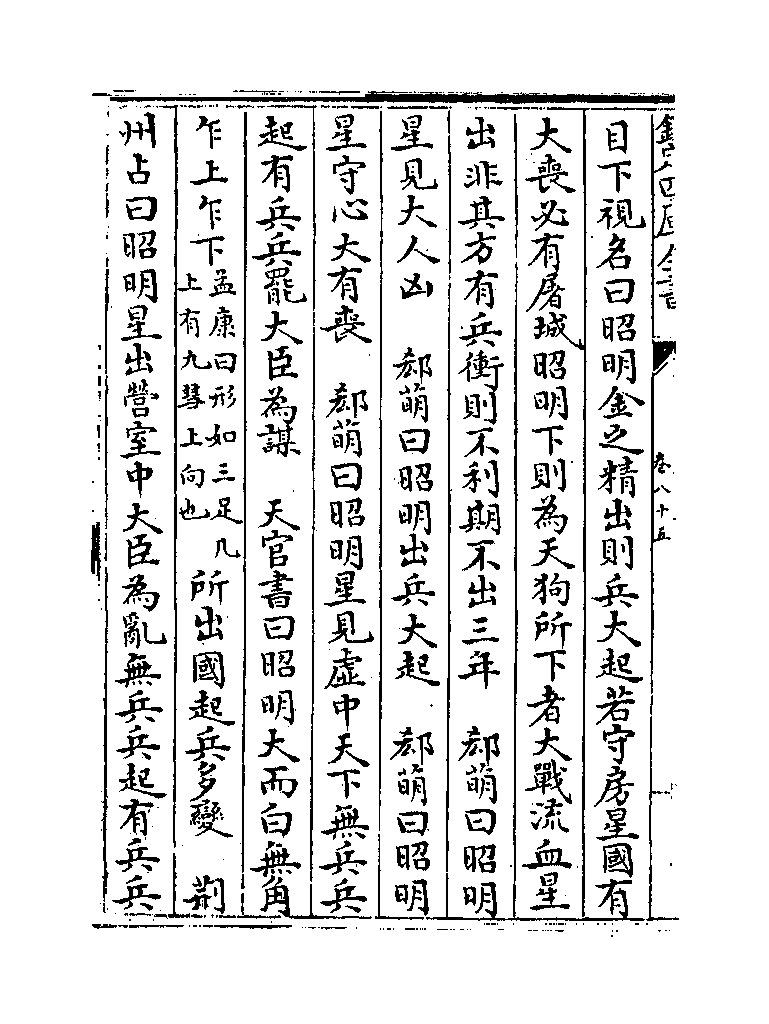 欽定四庫全書
卷八十五
目下視名曰昭明金之精出則兵大起若守房星國有
大喪必有屠城昭明下則為天狗所下者大戰流血星
出非其方有兵衝則不利期不出三年　郄萌曰昭明
星見大人凶　郄萌曰昭明出兵大起　郄萌曰昭明
星守心大有喪　郄萌曰昭明星見虛中天下無兵兵
起有兵兵罷大臣為謀　天官書曰昭明大而白無角
乍上乍下孟康曰形如三足几上有九彗上向也所出國起兵多變　荆
州占曰昭明星出營室中大臣為亂無兵兵起有兵兵